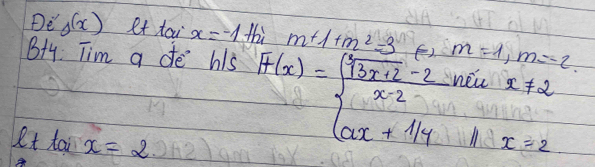 Để g(x) lt tại x = -1 thì m+1+m²=3 ⇔ m=1, m=-2.
Bt4: Tìm a để h/s F(x) = { (∛(3x+2) - 2)/(x-2) nếu x ≠ 2
ax + 1/4 // x = 2
lt tại x = 2.